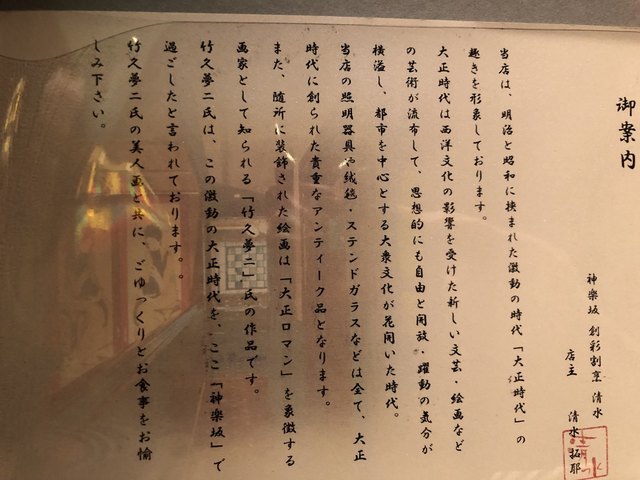 御案内
神楽坂 創彩割烹 清水
店主 清水 拓郎
当店は、明治と昭和に挟まれた激動の時代「大正時代」の
趣きを形象しております。
大正時代は西洋文化の影響を受けた新しい文芸・絵画など
の芸術が流布して、思想的にも自由と開放・躍動の気分が
横溢し、都市を中心とする大衆文化が花開いた時代。
当店の照明器具や絨毯・ステンドガラスなどは全て、大正
時代に創られた貴重なアンティーク品となります。
また、随所に装飾された絵画は「大正ロマン」を象徴する
画家として知られる「竹久夢二」氏の作品です。
竹久夢二氏は、この激動の大正時代を、ここ「神楽坂」で
過ごしたと言われております。。
竹久夢二氏の美人画と共に、ごゆっくりとお食事をお愉
しみ下さい。